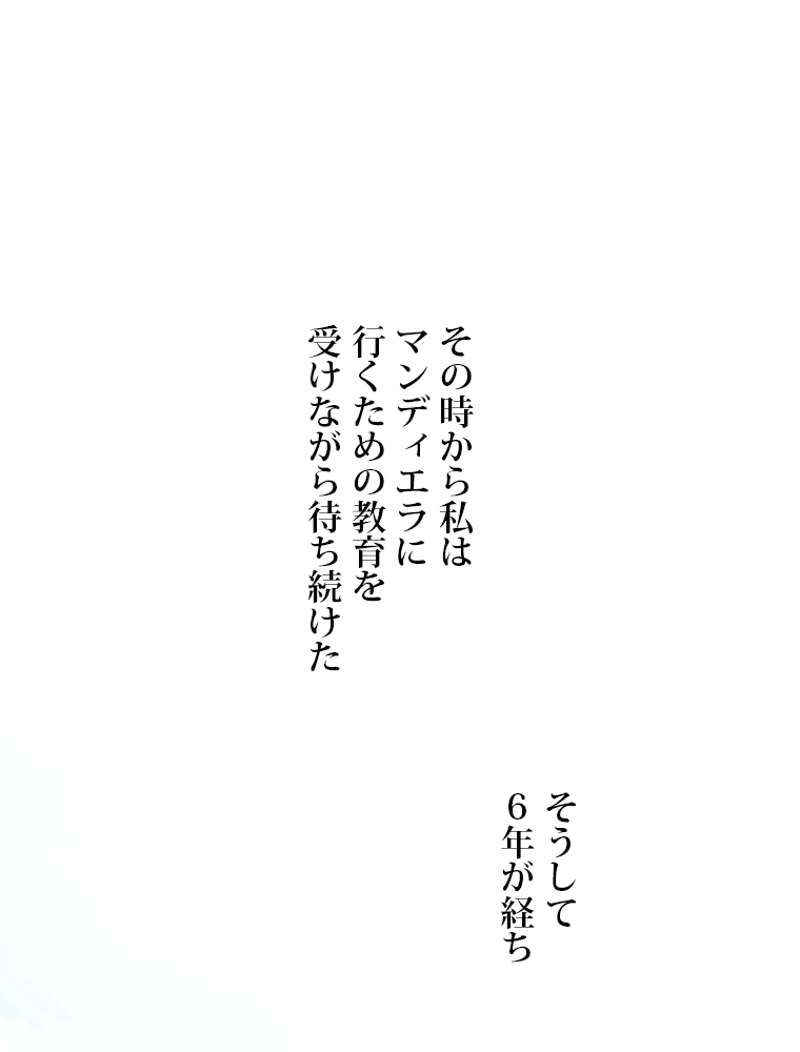 その時から私は
マンディエラに
行くための教育を
受けながら待ち続けた
そうして
６年が経ち